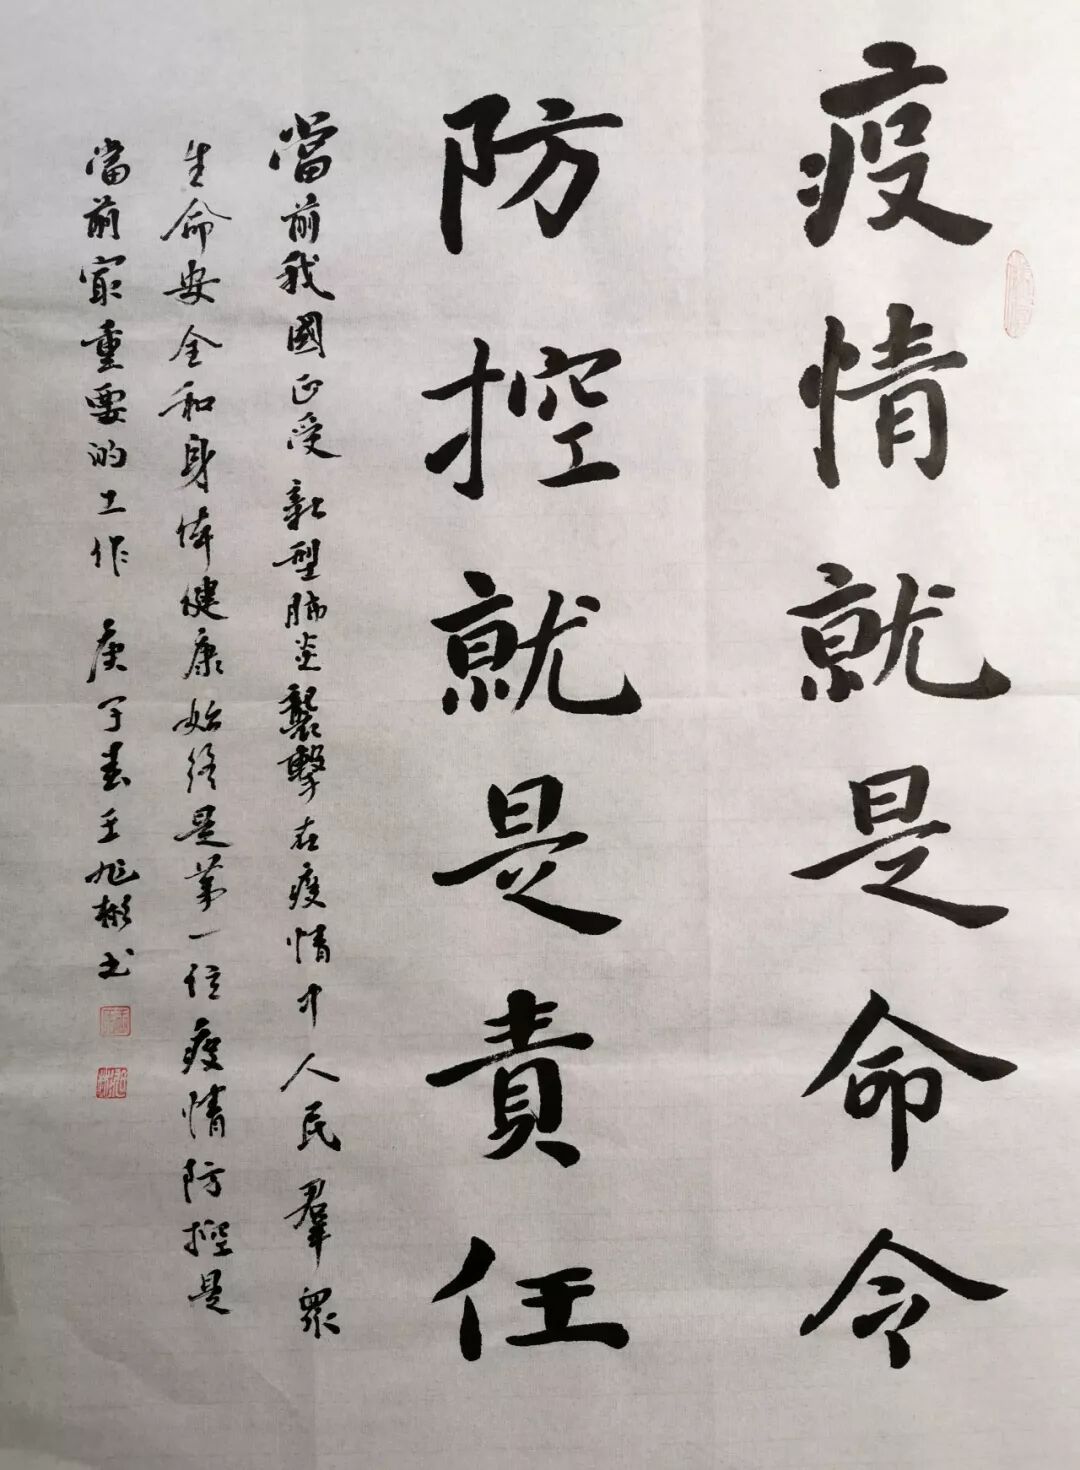 疫情就是命令
防控就是責任
當前我國正受新型肺炎襲擊在疫情中人民羣眾
生命安全和身体健康始終是第一位疫情防控是
當前最重要的工作 庚子春王旭彬书